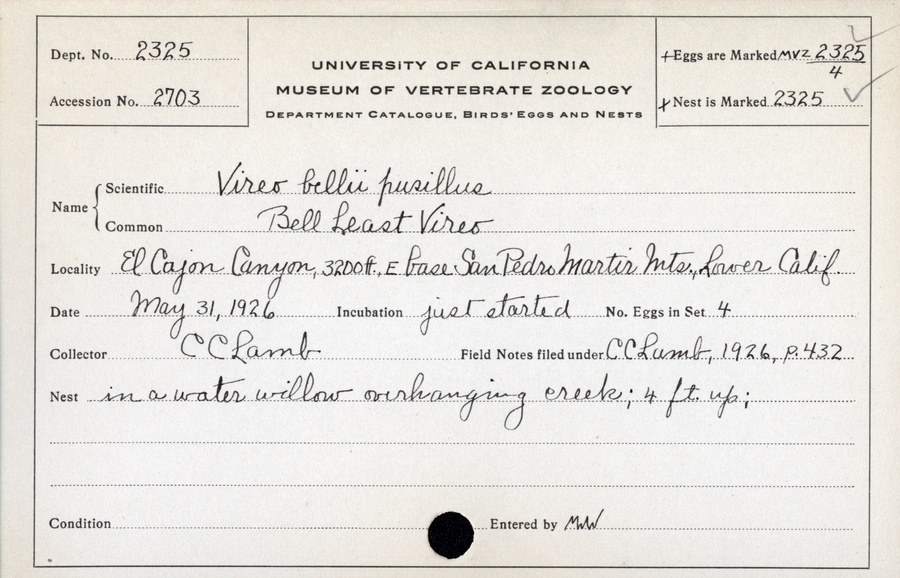 Dept. No. 2325
Accession No. 2703
UNIVERSITY OF CALIFORNIA
MUSEUM OF VERTEBRATE ZOOLOGY
DEPARTMENT CATALOGUE, BIRDS' EGGS AND NESTS
+Eggs are Marked MVZ 2325/4
+Nest is Marked 2325
Name
Scientific Vireo bellii pusillus
Common Bell Least Vireo
Locality El Cajon Canyon, 3200ft., E base San Pedro Martir Mts., Lower Calif.
Date May 31, 1926 Incubation just started No. Eggs in Set 4
Collector C C Lamb Field Notes filed under C C Lamb, 1926, p. 432
Nest in a water willow overhanging creek; 4 ft. up;
Condition Entered by